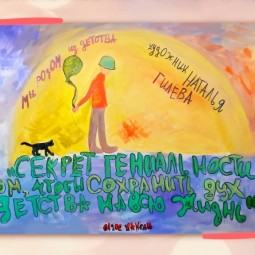 МЫ РОДОМ ИЗ ДЕТСТВА
ХУДОЖНИК НАТАЛЬЯ
ГИЛЕВА
"СЕКРЕТ ГЕНИАЛЬНОСТИ
ЧТОБЫ СОХРАНИТЬ ДУХ
ДЕТСТВА НА ВСЮ ЖИЗНЬ"